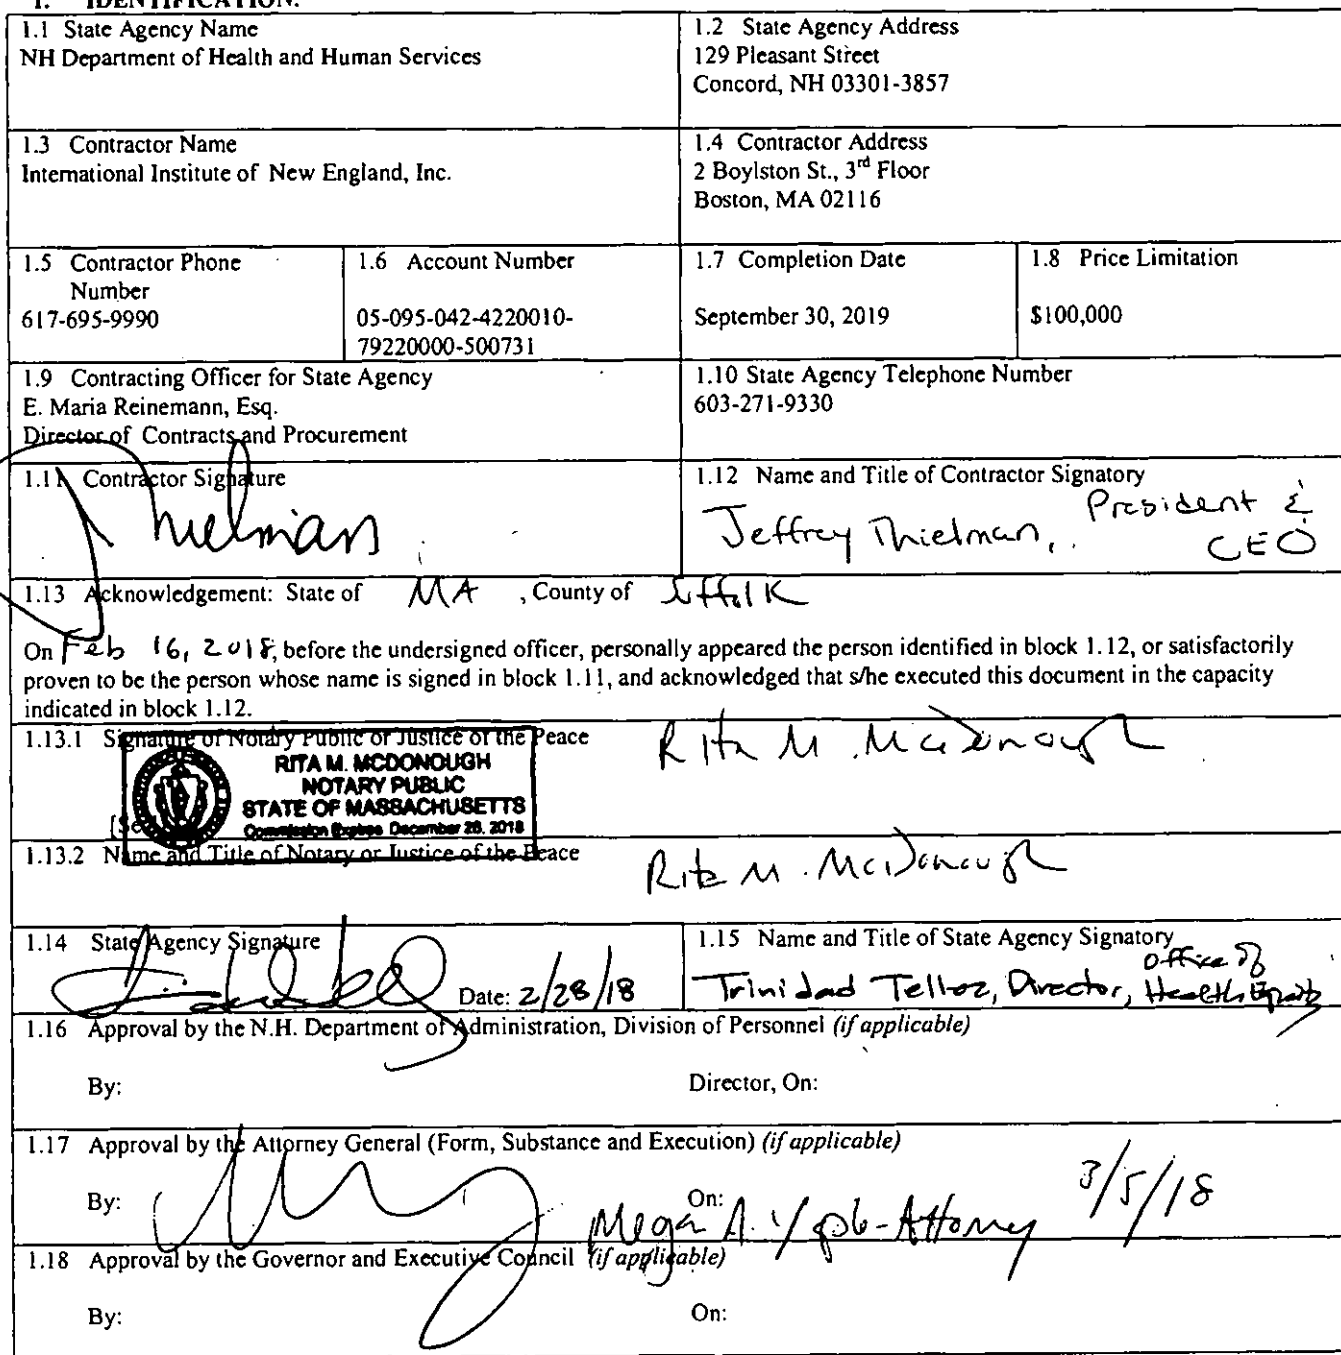 1. IDENTIFICATION.
1.1 State Agency Name
NH Department of Health and Human Services
1.2 State Agency Address
129 Pleasant Street
Concord, NH 03301-3857
1.3 Contractor Name
International Institute of New England, Inc.
1.4 Contractor Address
2 Boylston St., 3rd Floor
Boston, MA 02116
1.5 Contractor Phone
Number
617-695-9990
1.6 Account Number
05-095-042-4220010-
79220000-500731
1.7 Completion Date
September 30, 2019
1.8 Price Limitation
$100,000
1.9 Contracting Officer for State Agency
E. Maria Reinemann, Esq.
Director of Contracts and Procurement
1.10 State Agency Telephone Number
603-271-9330
1.11 Contractor Signature
Thielman
1.12 Name and Title of Contractor Signatory
Jeffrey Thielman, President &
CEO
1.13 Acknowledgement: State of MA , County of Suffolk
On Feb 16, 2018, before the undersigned officer, personally appeared the person identified in block 1.12, or satisfactorily
proven to be the person whose name is signed in block 1.11, and acknowledged that s/he executed this document in the capacity
indicated in block 1.12.
1.13.1 Signature of Notary Public or Justice of the Peace
Rita M. McDonough
RITA M. MCDONOUGH
NOTARY PUBLIC
STATE OF MASSACHUSETTS
Commission Expires December 28, 2018
1.13.2 Name and Title of Notary or Justice of the Peace
Rita M. McDonough
1.14 State Agency Signature
Date: 2/28/18
1.15 Name and Title of State Agency Signatory
Trinidad Tellez, Director, Office of
Health Equity
1.16 Approval by the N.H. Department of Administration, Division of Personnel (if applicable)
By:
Director, On:
1.17 Approval by the Attorney General (Form, Substance and Execution) (if applicable)
By:
On:
Megan A. - Attorney 3/5/18
1.18 Approval by the Governor and Executive Council (if applicable)
By:
On: